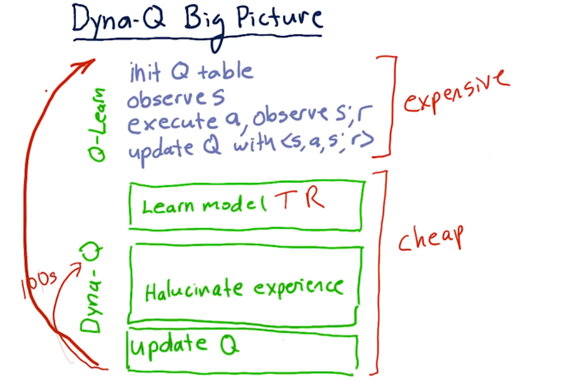 Dyna-Q Big Picture
init Q table
observe s
execute a, observe s', r
update Q with <s, a, s', r>
Q-Learn
expensive
Learn model T R
Halucinate experience
update Q
Dyna-Q
cheap
100s